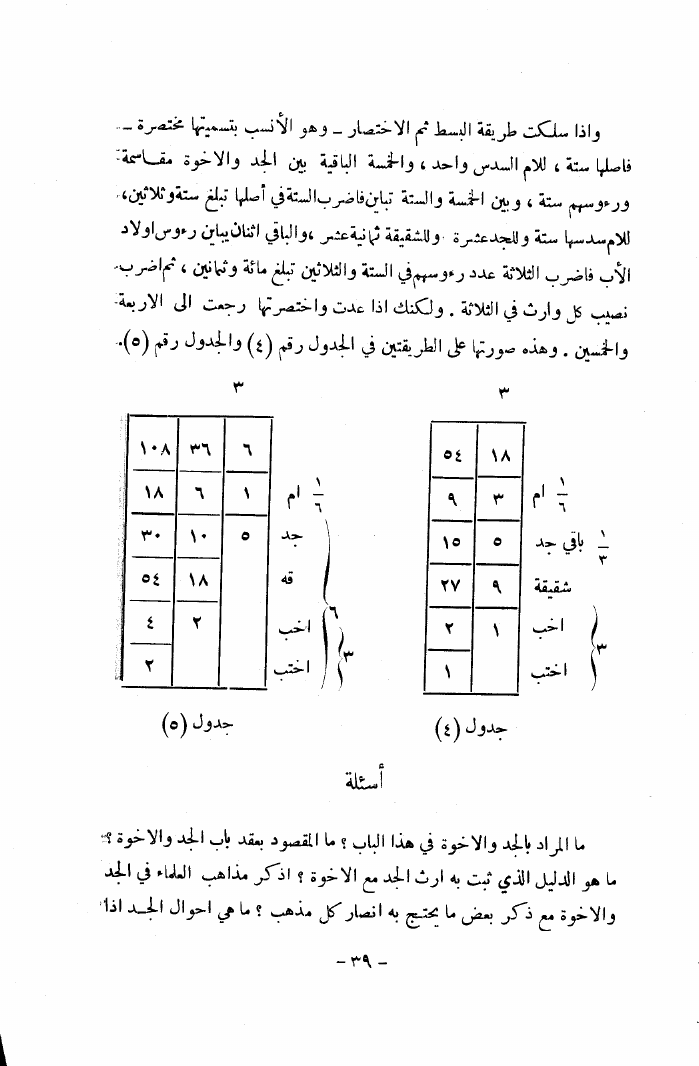 واذا سلكت طريقة البسط ثم الاختصار - وهو الأنسب بتسميتها مختصرة -
فاصلها ستة ، للام السدس واحد ، والخمسة الباقية بين الجد والاخوة مقاسمة
ورءوسهم ستة ، وبين الخمسة والستة تباين فاضرب الستة في أصلها تبلغ ستة وثلاثين ،
للام سدسها ستة وللجد عشرة وللشقيقة ثمانية عشر ، والباقي اثنان يباين رءوس اولاد
الأب فاضرب الثلاثة عدد رءوسهم في الستة والثلاثين تبلغ مائة وثمانين ، ثم اضرب
نصيب كل وارث في الثلاثة . ولكنك اذا عدت واختصرتها رجعت الى الاربعة
والخمسين . وهذه صورتها على الطريقتين في الجدول رقم (٤) والجدول رقم (٥).
٣
١٨ ٥٤
١/٦ ام ٣ ٩
١/٣ باقي جد ٥ ١٥
شقيقة ٩ ٢٧
٣ اخب ١ ٢
اختب ١
جدول (٤)
٣
٦ ٣٦ ١٠٨
١/٦ ام ١ ٦ ١٨
٦ جد ٥ ١٠ ٣٠
قه ١٨ ٥٤
٣ اخب ٢ ٤
اختب ٢
جدول (٥)
أسئلة
ما المراد بالجد والاخوة في هذا الباب ؟ ما المقصود بعقد باب الجد والاخوة ؟
ما هو الدليل الذي ثبت به ارث الجد مع الاخوة ؟ اذكر مذاهب العلماء في الجد
والاخوة مع ذكر بعض ما يحتج به انصار كل مذهب ؟ ما هي احوال الجد اذا
- ٣٩ -